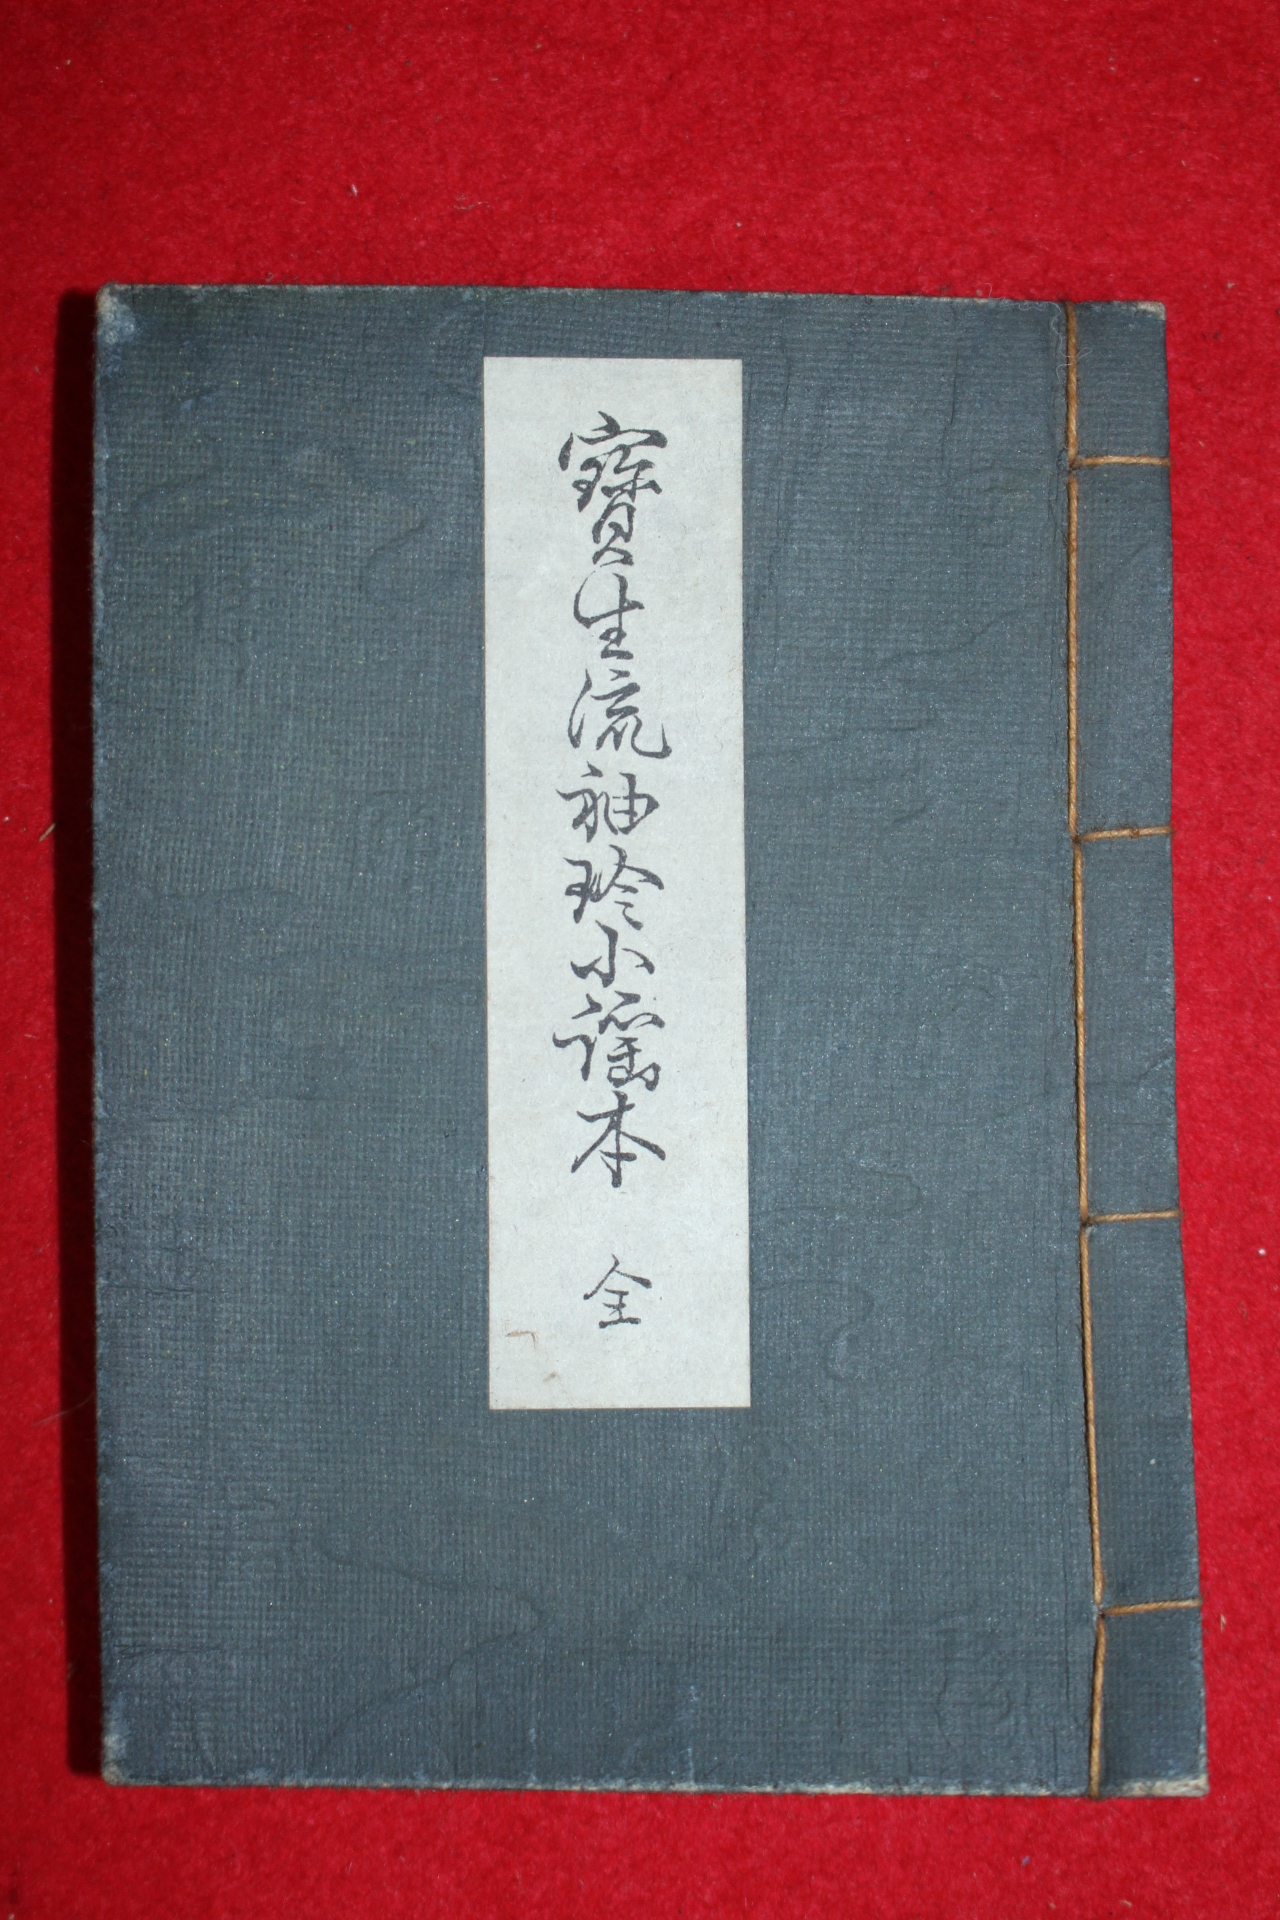 寶生流袖珍小謡本 全